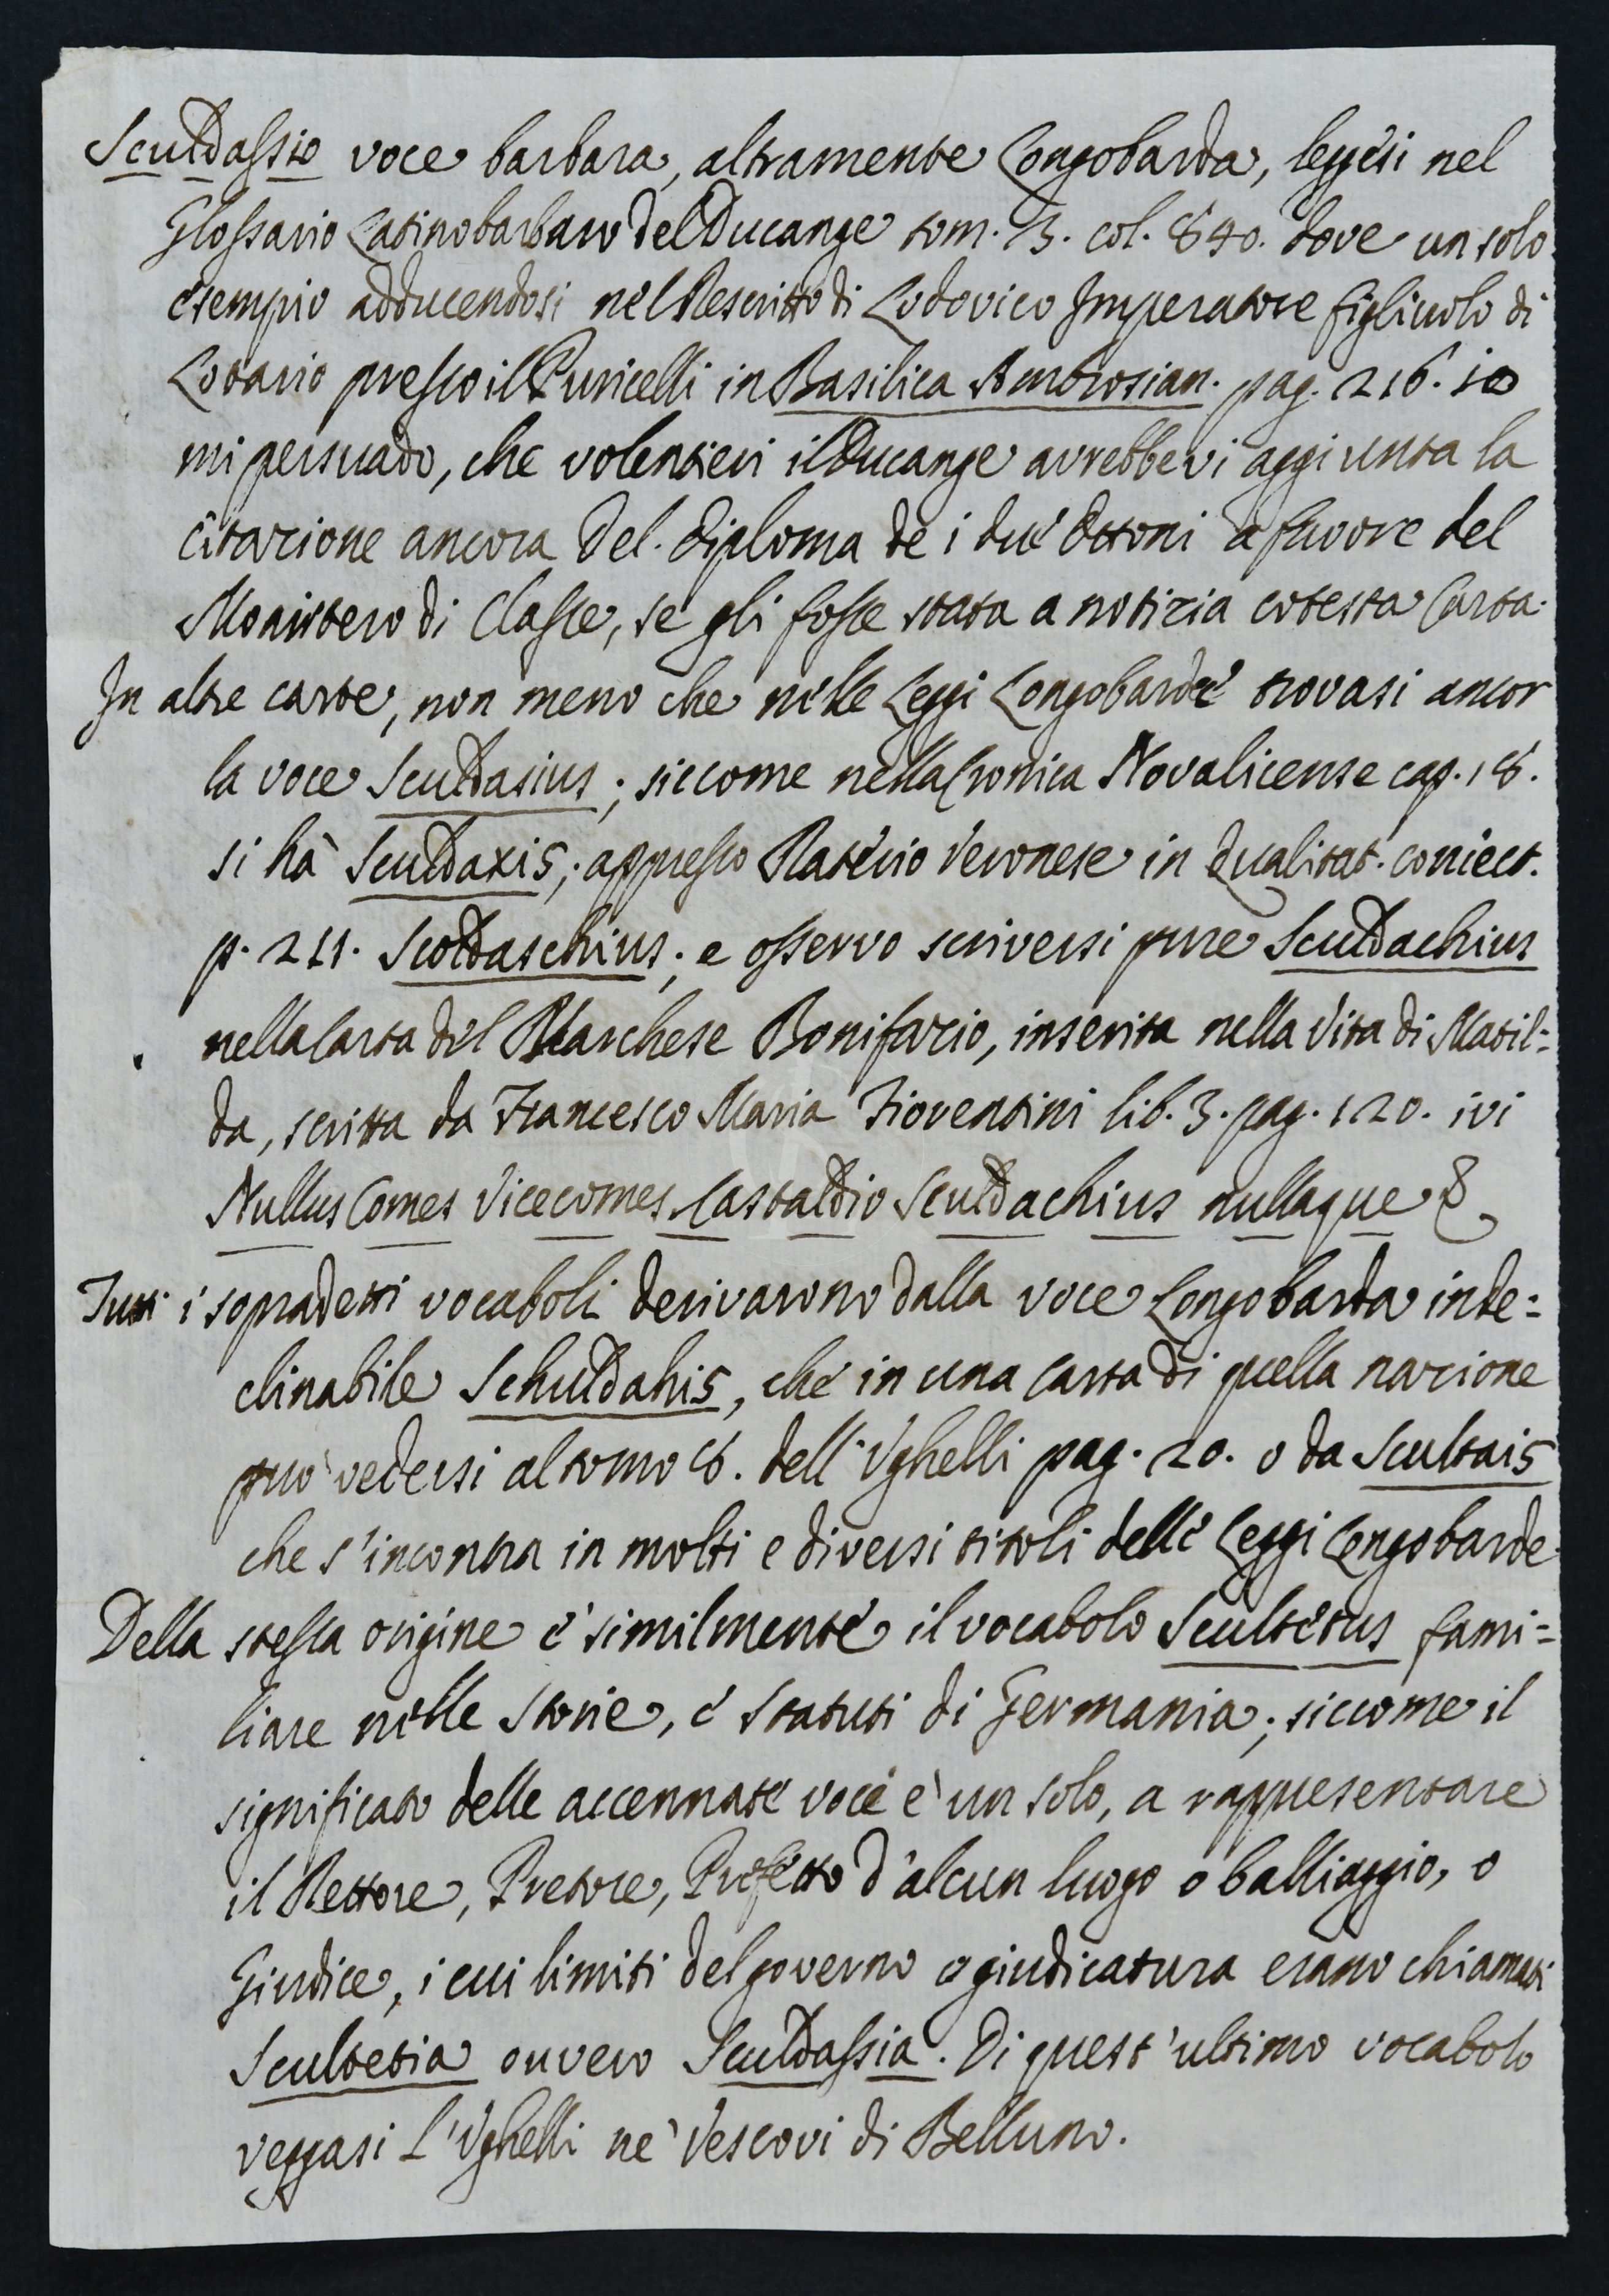 Sculdassio voce barbara, altramente Longobarda, leggesi nel
Glossario Latinobarbaro del Ducange tom. 3. col. 840. dove un solo
esempio adducendosi nel Rescritto di Lodovico Imperatore figliuolo di
Lotario presso il Puricelli in Basilica Ambrosian. pag. 216. io
mi persuado, che volentieri il Ducange avrebbevi aggiunta la
citazione ancora del diploma de i due Ottoni a favore del
Monistero di Classe, se gli fosse stata a notizia cotesta Carta.
In altre carte, non meno che nelle Leggi Longobarde trovasi ancor
la voce Sculdasius; siccome nella Cronica Novalicense cap. 18.
si hà Sculdaxis; appresso Raterio Veronese in Qualitat. coniect.
p. 211. Scoldaschius; e osservo scriversi pure Sculdachius
nella Carta del Marchese Bonifazio, inserita nella Vita di Matil=
da, scritta da Francesco Maria Fiorentini lib. 3. pag. 120. ivi
Nullus Comes Vicecomes Castaldio Sculdachius nullaque &
Tutti i sopradetti vocaboli derivarono dalla voce Longobarda inde=
clinabile Schuldahis, che in una carta di quella nazione
può vedersi al tomo 6. dell' Vghelli pag. 20. o da Scultais
che s'incontra in molti e diversi titoli delle Leggi Longobarde.
Della stessa origine è similmente il vocabolo Scultetus fami=
liare nelle Storie, e Statuti di Germania; siccome il
significato delle accennate voce è un solo, a rappresentare
il Rettore, Pretore, Prefetto d'alcun luogo o balliaggio, o
Giudice, i cui limiti del governo o giudicatura erano chiamati
Scultetia ouvero Sculdassia. Di quest'ultimo vocabolo
veggasi l'Vghelli ne' Vescovi di Belluno.